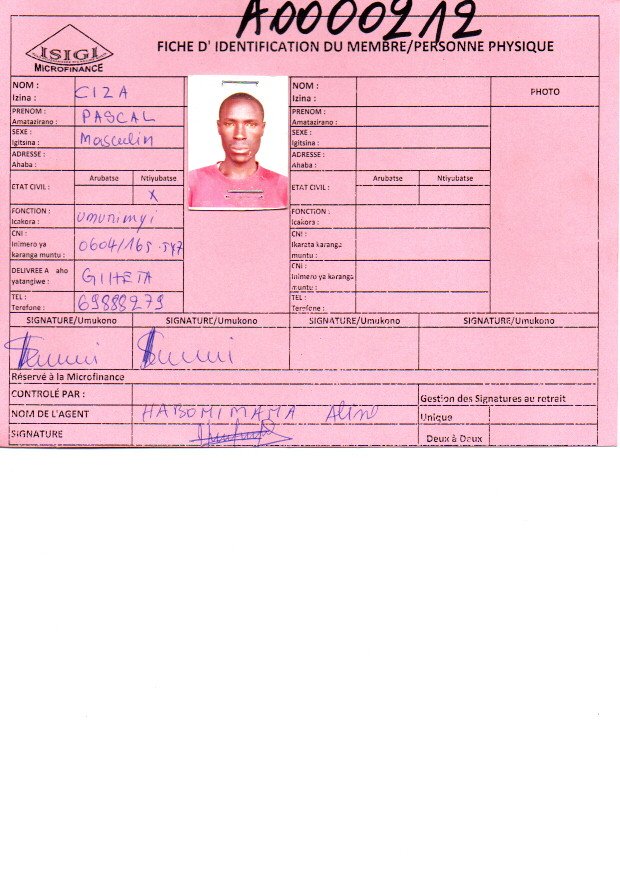 A0000212
ISIGI
MICROFINANCE
FICHE D' IDENTIFICATION DU MEMBRE/PERSONNE PHYSIQUE
NOM :
Izina :
CIZA
NOM :
Izina :
PHOTO
PRENOM :
Amatazirano :
PASCAL
PRENOM :
Amatazirano :
SEXE :
Igitsina :
Masculin
SEXE :
Igitsina :
ADRESSE :
Ahaba :
ADRESSE :
Ahaba :
ETAT CIVIL :
Arubatse
Ntiyubatse
X
ETAT CIVIL :
Arubatse
Ntiyubatse
FONCTION :
Icakora :
Umurimyi
FONCTION :
Icakora :
CNI :
Inimero ya
karanga muntu :
0604/165.547
CNI :
Ikarata karanga
muntu :
DELIVREE A aho
yatangiwe :
GIHETA
CNI :
Inimero ya karanga
muntu :
TEL :
Terefone :
69888279
TEL :
Terefone :
SIGNATURE/Umukono
SIGNATURE/Umukono
SIGNATURE/Umukono
SIGNATURE/Umukono
Réservé à la Microfinance
CONTROLÉ PAR :
Gestion des Signatures au retrait
NOM DE L'AGENT
HABONIMANA Aline
Unique
SIGNATURE
Deux à Deux